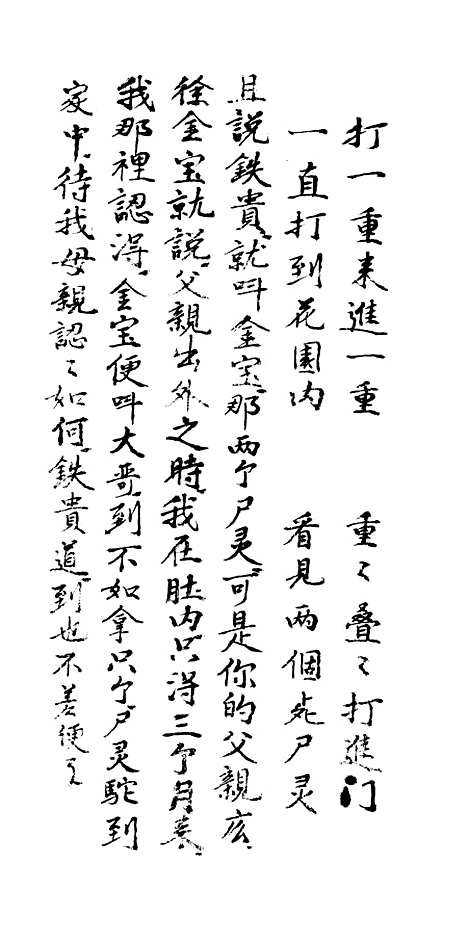 打一重来進一重　重〻叠〻打進门
一直打到花園内　看見两個死尸灵
且說鉄貴就叫金宝那两个尸灵可是你的父親庅
徐金宝就說父親出外之時我在肚内只得三个月来
我那裡認淂金宝便叫大哥到不如拿只个尸灵駝到
家中待我母親認〻如何鉄貴道到也不差便了